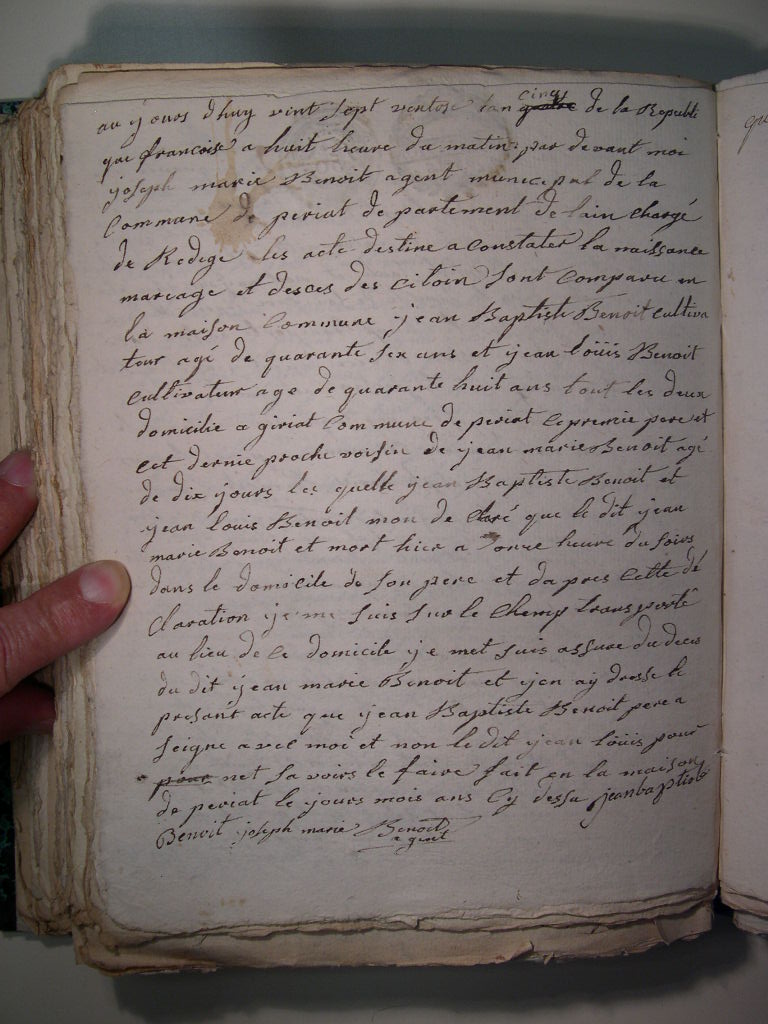 au yours dhuy vint sept ventose lan cinq quatre de la Republi
que francoise a huit heure du matin par devant moi
joseph marie Benoit agent municipal de la
Commune de periat departement de lain chargé
de Redege les acte destine a Constater la naissance
mariage et desces des citoin sont Comparu en
la maison Commune jean Baptiste Benoit cultiva
teur agé de quarante sex ans et jean loüis Benoit
Cultivateur age de quarante huit ans tout les deux
domicilie a giriat Commune de periat le premie pere et
cet dernie proche voisin de jean marie Benoit agé
de dix jours les quelle jean Baptiste Benoit et
jean louis Benoit mon de Claré que le dit jean
marie Benoit et mort hier a heure du soirs
dans le domicile de son pere et da pres Cette dé
Claration je me suis sur le Champ transporté
au lieu de Ce domicile je met suis assure du deces
du dit jean marie Benoit et jen aÿ dresse le
presant acte que jean Baptiste Benoit pere a
seigne avec moi et non le dit jean loüis pour
pour net savoirs le faire fait en la maison
de periat le jours mois ans Cy dessu jeanbaptiste
Benoit joseph marie Benoit
agent
qu